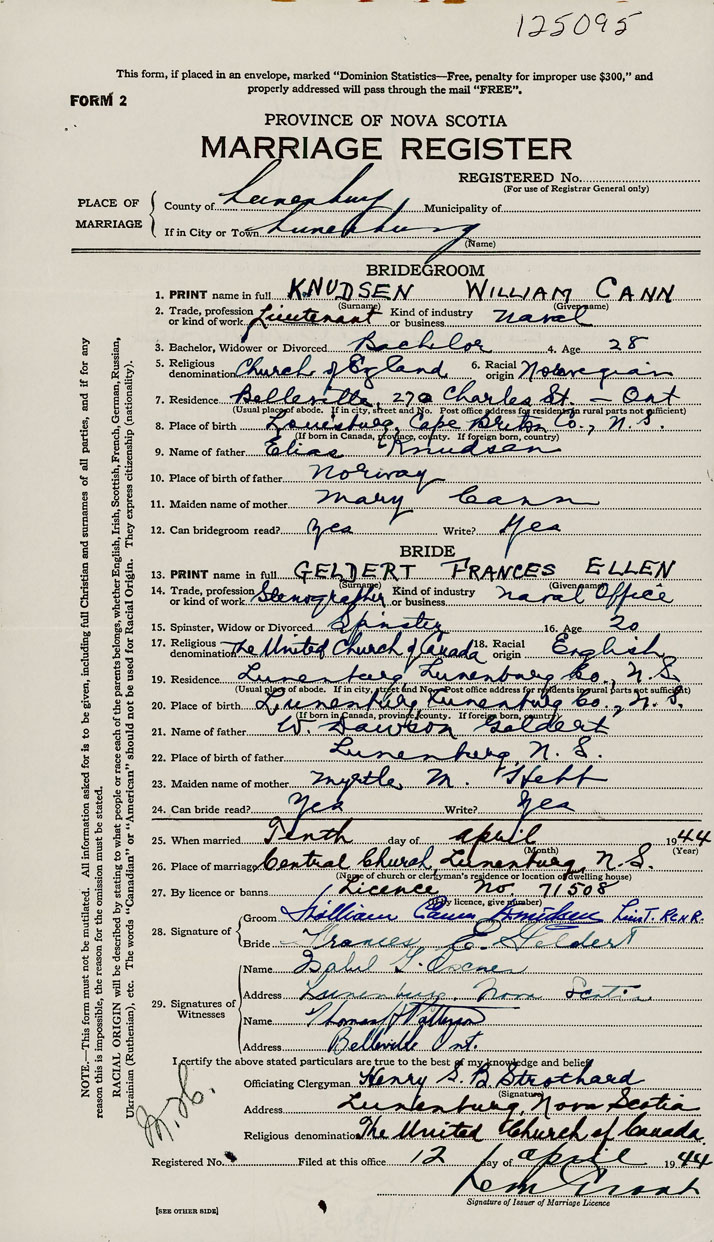 125095
This form, if placed in an envelope, marked "Dominion Statistics—Free, penalty for improper use $300," and
properly addressed will pass through the mail "FREE".
FORM 2
PROVINCE OF NOVA SCOTIA
MARRIAGE REGISTER
REGISTERED No.
(For use of Registrar General only)
PLACE OF MARRIAGE
County of Lunenburg Municipality of
If in City or Town Lunenburg
(Name)
BRIDEGROOM
1. PRINT name in full KNUDSEN WILLIAM CANN
(Surname) (Given name)
2. Trade, profession or kind of work Lieutenant Kind of industry or business Naval
3. Bachelor, Widower or Divorced Bachelor 4. Age 28
5. Religious denomination Church of England 6. Racial origin Norwegian
7. Residence Belleville, 270 Charles St. - Ont
(Usual place of abode. If in city, street and No. Post office address for residents in rural parts not sufficient)
8. Place of birth Louisburg, Cape Breton Co., N.S.
(If born in Canada, province, county. If foreign born, country)
9. Name of father Elias Knudsen
10. Place of birth of father Norway
11. Maiden name of mother Mary Cann
12. Can bridegroom read? Yes Write? Yes
BRIDE
13. PRINT name in full GELDERT FRANCES ELLEN
(Surname) (Given name)
14. Trade, profession or kind of work Stenographer Kind of industry or business Naval Office
15. Spinster, Widow or Divorced Spinster 16. Age 20
17. Religious denomination The United Church of Canada 18. Racial origin English
19. Residence Lunenburg Lunenburg Co., N.S.
(Usual place of abode. If in city, street and No. Post office address for residents in rural parts not sufficient)
20. Place of birth Lunenburg Lunenburg Co., N.S.
(If born in Canada, province, county. If foreign born, country)
21. Name of father W. Dawson Geldert
22. Place of birth of father Lunenburg, N.S.
23. Maiden name of mother Myrtle M. Hebb
24. Can bride read? Yes Write? Yes
25. When married Tenth day of April 1944
(Month) (Year)
26. Place of marriage Central Church, Lunenburg, N.S.
(Name of church or clergyman's residence or location of dwelling house)
27. By licence or banns Licence No. 71508
(If by licence, give number)
28. Signature of
Groom William Cann Knudsen Lieut. R.C.N.R.
Bride Frances E. Geldert
29. Signatures of Witnesses
Name
Address Lunenburg, Nova Scotia
Name Thomas Patterson
Address Belleville Ont.
I certify the above stated particulars are true to the best of my knowledge and belief
Officiating Clergyman Henry S. B. Strothard
(Signature)
Address Lunenburg, Nova Scotia
Religious denomination The United Church of Canada
Registered No. Filed at this office 12 day of April 1944
Grant
Signature of Issuer of Marriage Licence
[SEE OTHER SIDE]
NOTE.—This form must not be mutilated. All information asked for is to be given, including full Christian and surnames of all parties, and if for any
reason this is impossible, the reason for the omission must be stated.
RACIAL ORIGIN will be described by stating to what people or race each of the parents belongs, whether English, Irish, Scottish, French, German, Russian,
Ukrainian (Ruthenian), etc. The words "Canadian" or "American" should not be used for Racial Origin. They express citizenship (nationality).